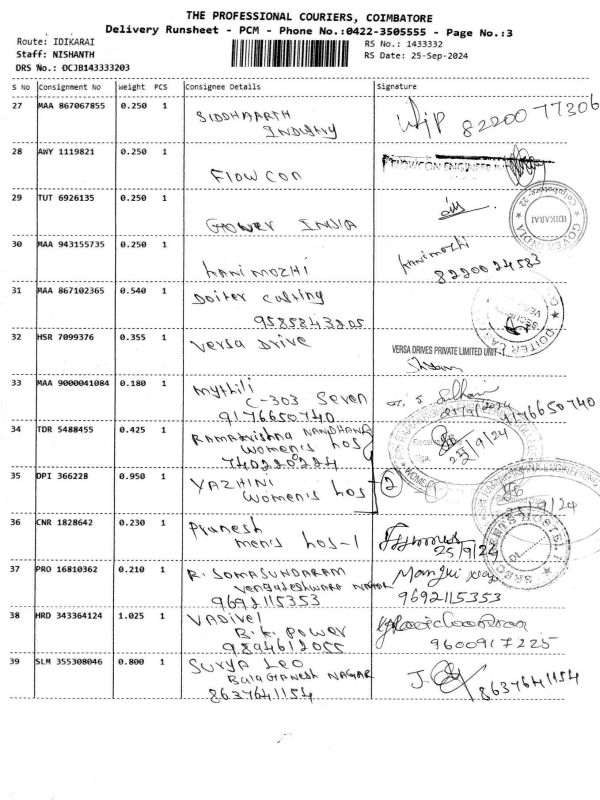 THE PROFESSIONAL COURIERS, COIMBATORE
Delivery Runsheet - PCM - Phone No.:0422-3505555 - Page No.:3
Route: IDIKARAI
RS No.: 1433332
Staff: NISHANTH
RS Date: 25-Sep-2024
DRS No.: OCJB143333203
S No Consignment No Weight PCS Consignee Details Signature
27 MAA 867067855 0.250 1
SIDDHAARTH
INDUSTRY
82200 77306
28 AWY 1119821 0.250 1
FLOWCON
FLOWCON ENGINEER
29 TUT 6926135 0.250 1
GOWER INDIA
GOVER INDIA
Coimbatore 22
IDIKARAI
30 MAA 943155735 0.250 1
kani mozhi
8220024583
KANIMOZHI
31 MAA 867102365 0.540 1
Doiter cutting
9585843205
SECURITY
32 HSR 7099376 0.355 1
Versa Drive
VERSA DRIVES PRIVATE LIMITED UNIT-1
33 MAA 9000041084 0.180 1
Mythili
C-303 Seven
9176650740
25/9/2024
9176650740
34 TDR 5488455 0.425 1
Ramakrishna NANDHANA
Women's hos
740220224
25/9/24
35 DPI 366228 0.950 1
YAZHINI
Women's hos
2
36 CNR 1828642 0.230 1
Pranesh
men's hos-1
25/9/24
37 PRO 16810362 0.210 1
R. SOMASUNDARAM
Vengadeshwara NAGAR
9692115353
9692115353
38 HRD 343364124 1.025 1
VADIVEL
B.K. POWER
9894612055
9600917225
39 SLM 355308046 0.800 1
SURYA LEO
Bala GANESH NAGAR
8637641154
8637641154